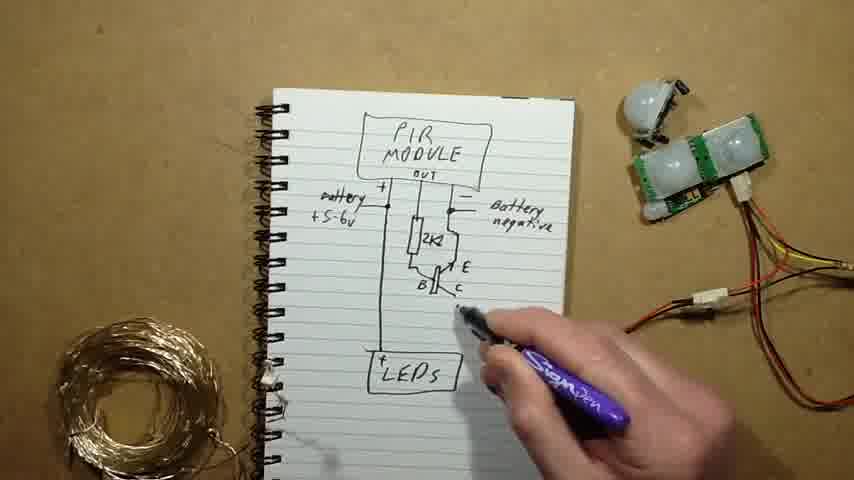 PIR
MODULE
OUT
+ −
Battery
+5-6v
Battery
negative
2K2
E
B
C
+
LEDs
Sign pen